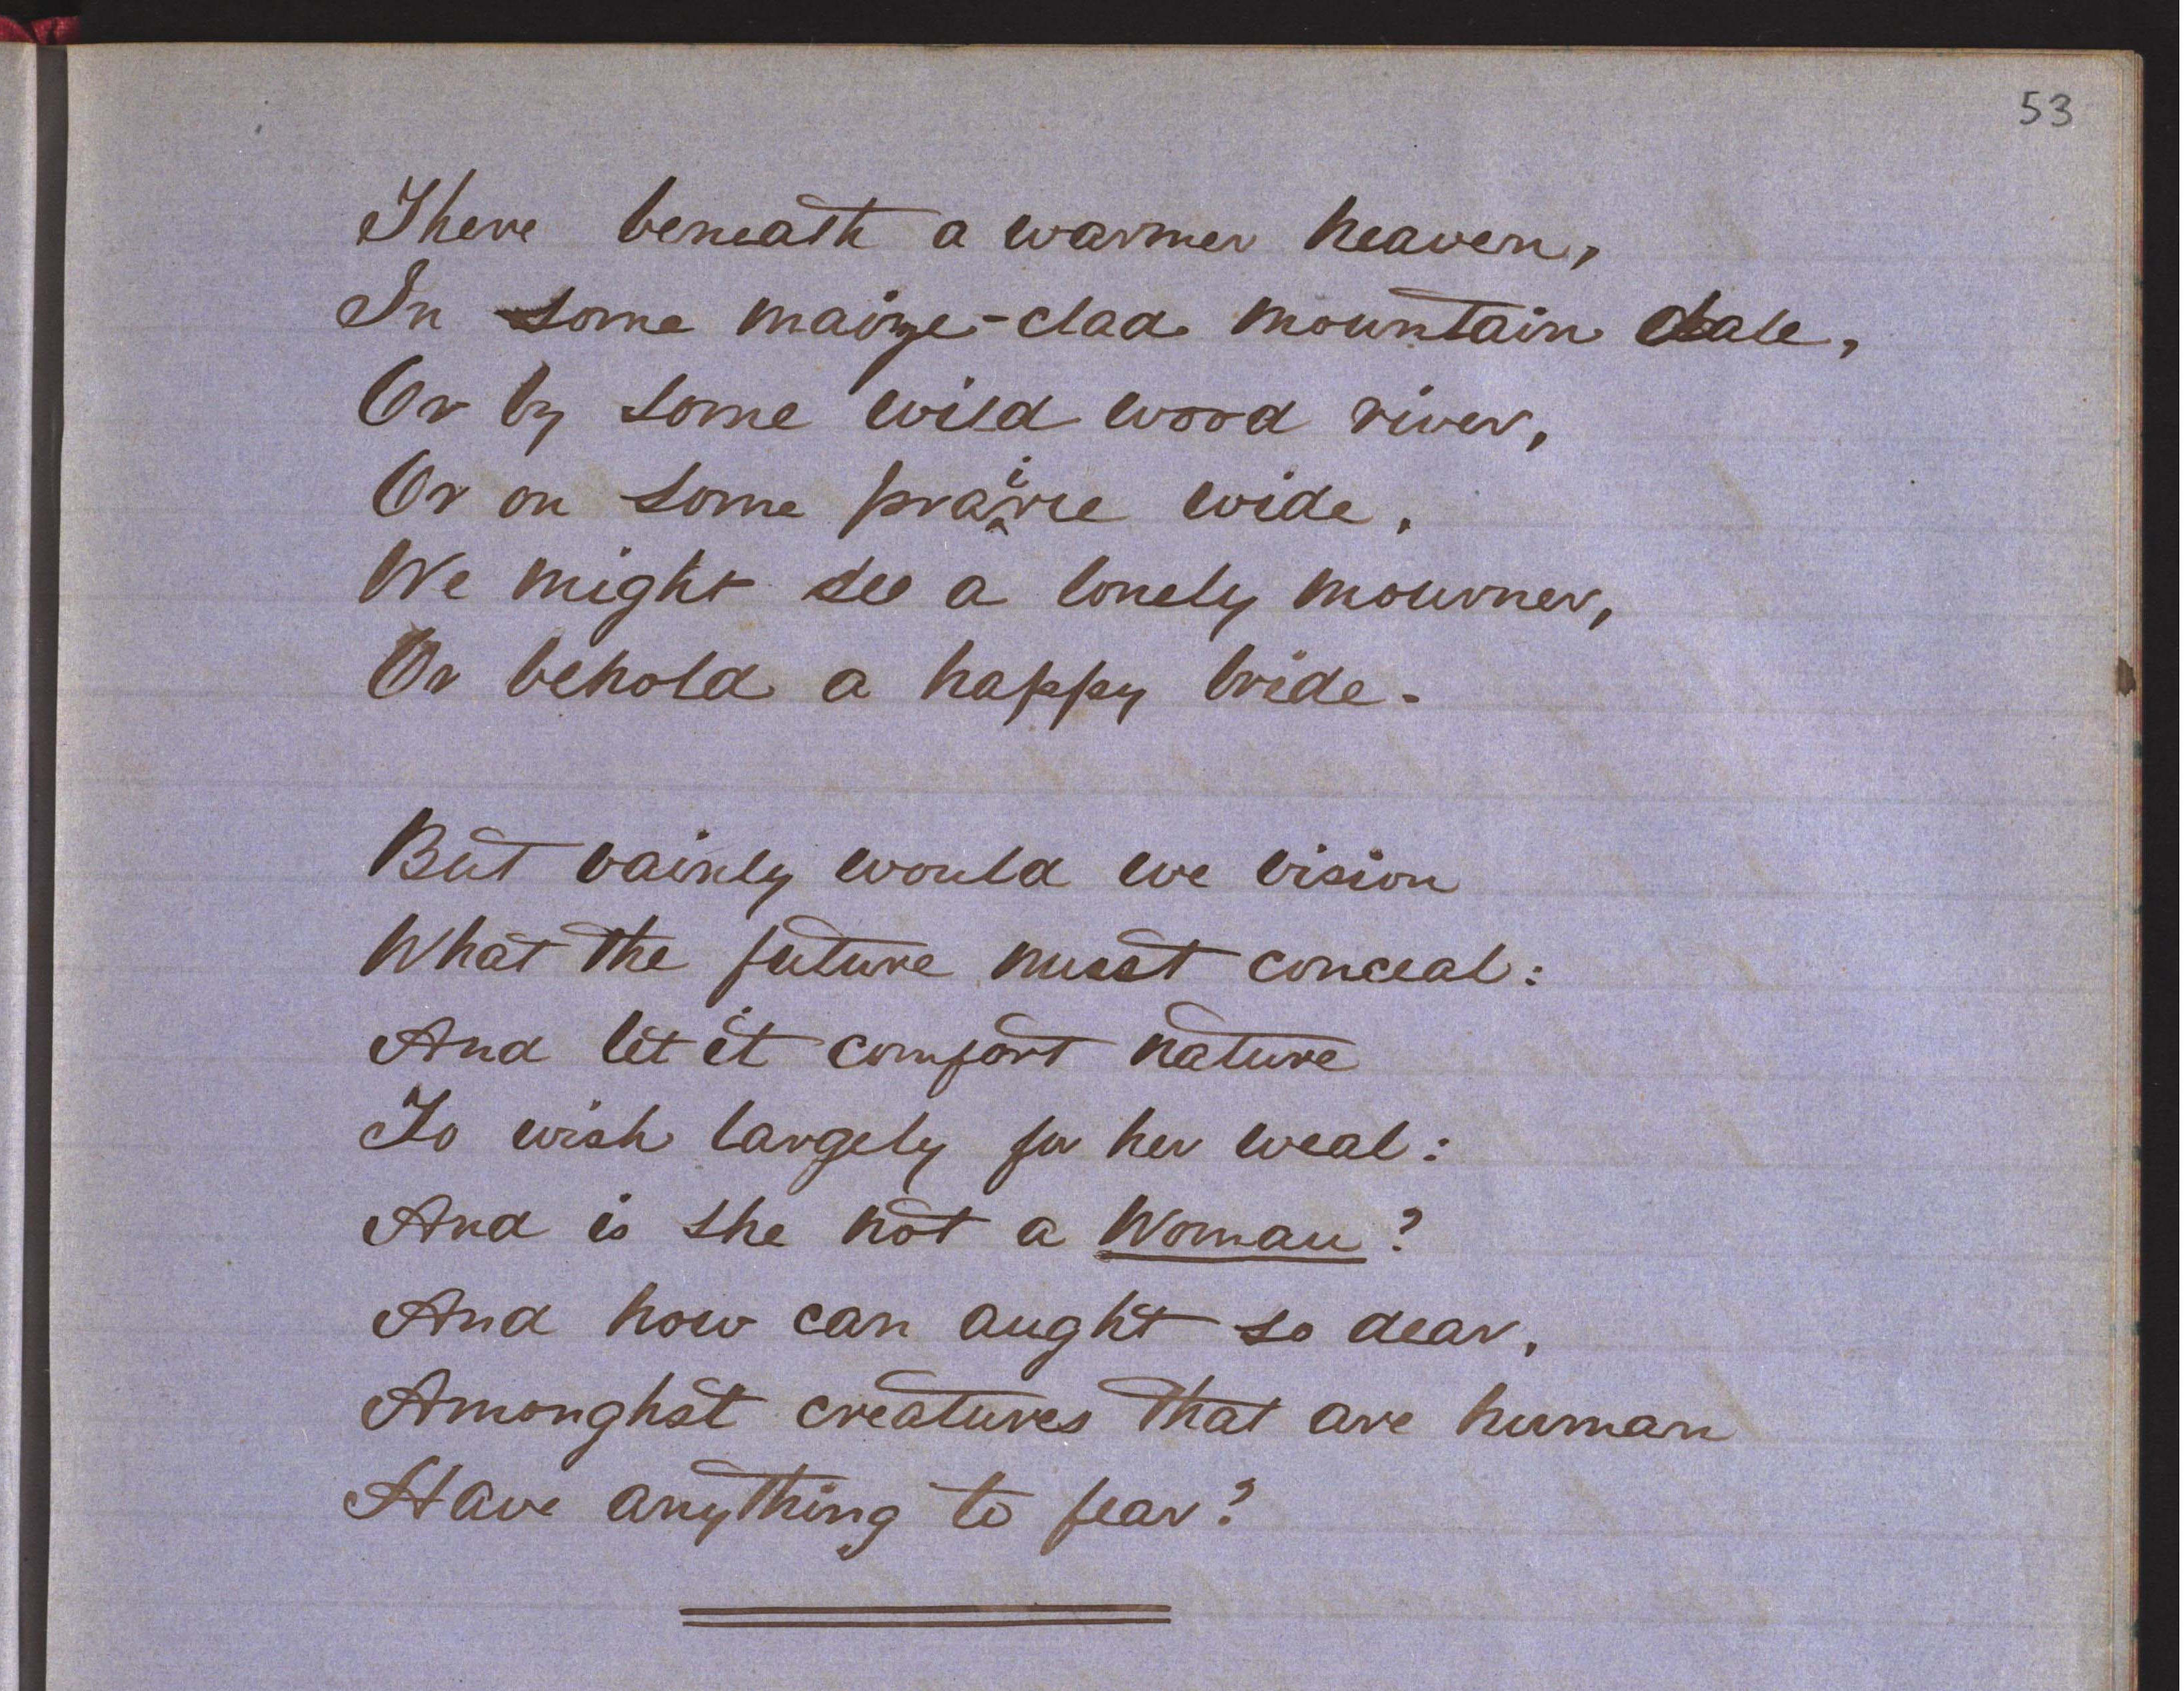 53
There beneath a warmer heaven,
In some maize-clad mountain dale,
Or by some wild wood river,
Or on some prairie wide,
We might see a lonely mourner,
Or behold a happy bride.
But vainly would we vision
What the future must conceal:
And let it comfort nature
To wish largely for her weal:
And is she not a Woman?
And how can aught so dear,
Amonghst creatures that are human
Have anything to fear?